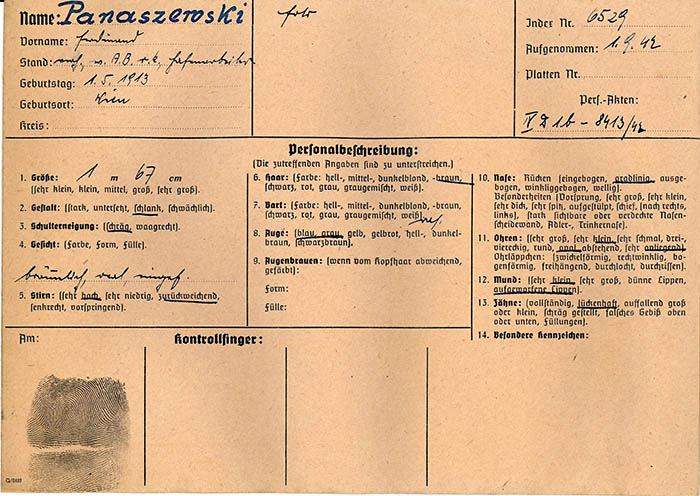 Name: Panaszewski
Vorname: Ferdinand
Stand: verh., v. A.B. r.k., Hafenarbeiter
Geburtstag: 1.5.1913
Geburtsort: Wien
Kreis:
foto
Index Nr. 6529
Aufgenommen: 1.9.42
Platten Nr.
Pers.-Akten:
IV D 1b - 8413/42
Personalbeschreibung:
(Die zutreffenden Angaben sind zu unterstreichen.)
1. Größe: 1 m 67 cm
(sehr klein, klein, mittel, groß, sehr groß).
2. Gestalt: (stark, untersetzt, schlank, schwächlich).
3. Schulterneigung: (schräg, waagrecht).
4. Gesicht: (Farbe, Form, Fülle).
bräunlich, oval, eingef.
5. Stirn: (sehr hoch, sehr niedrig, zurückweichend,
senkrecht, vorspringend).
6. Haar: (Farbe: hell-, mittel-, dunkelblond, -braun,
schwarz, rot, grau, graugemischt, weiß).
7. Bart: (Farbe: hell-, mittel-, dunkelblond, -braun,
schwarz, rot, grau, graugemischt, weiß).
8. Auge: (blau, grau, gelb, gelbrot, hell-, dunkel-
braun, schwarzbraun).
9. Augenbrauen: (wenn vom Kopfhaar abweichend,
gefärbt):
Form:
Fülle:
10. Nase: Rücken (eingebogen, gradlinig, ausge-
bogen, winkliggebogen, wellig).
Besonderheiten (Vorsprung, sehr groß, sehr klein,
sehr dick, sehr spitz, aufgestülpt, schief, (nach rechts,
links), stark sichtbare oder verdeckte Nasen-
scheidewand, Adler-, Trinkernase).
11. Ohren: (sehr groß, sehr klein, sehr schmal, drei-
viereckig, rund, oval, abstehend, sehr anliegend).
Ohrläppchen: (zwickelförmig, rechtwinklig, bo-
genförmig, freihängend, durchlocht, durchrissen).
12. Mund: (sehr klein, sehr groß, dünne Lippen,
aufgeworfene Lippen).
13. Zähne: (vollständig, lückenhaft, auffallend groß
oder klein, schräg gestellt, falsches Gebiß oben
oder unten, Füllungen).
14. Besondere Kennzeichen:
Am:
Kontrollfinger: